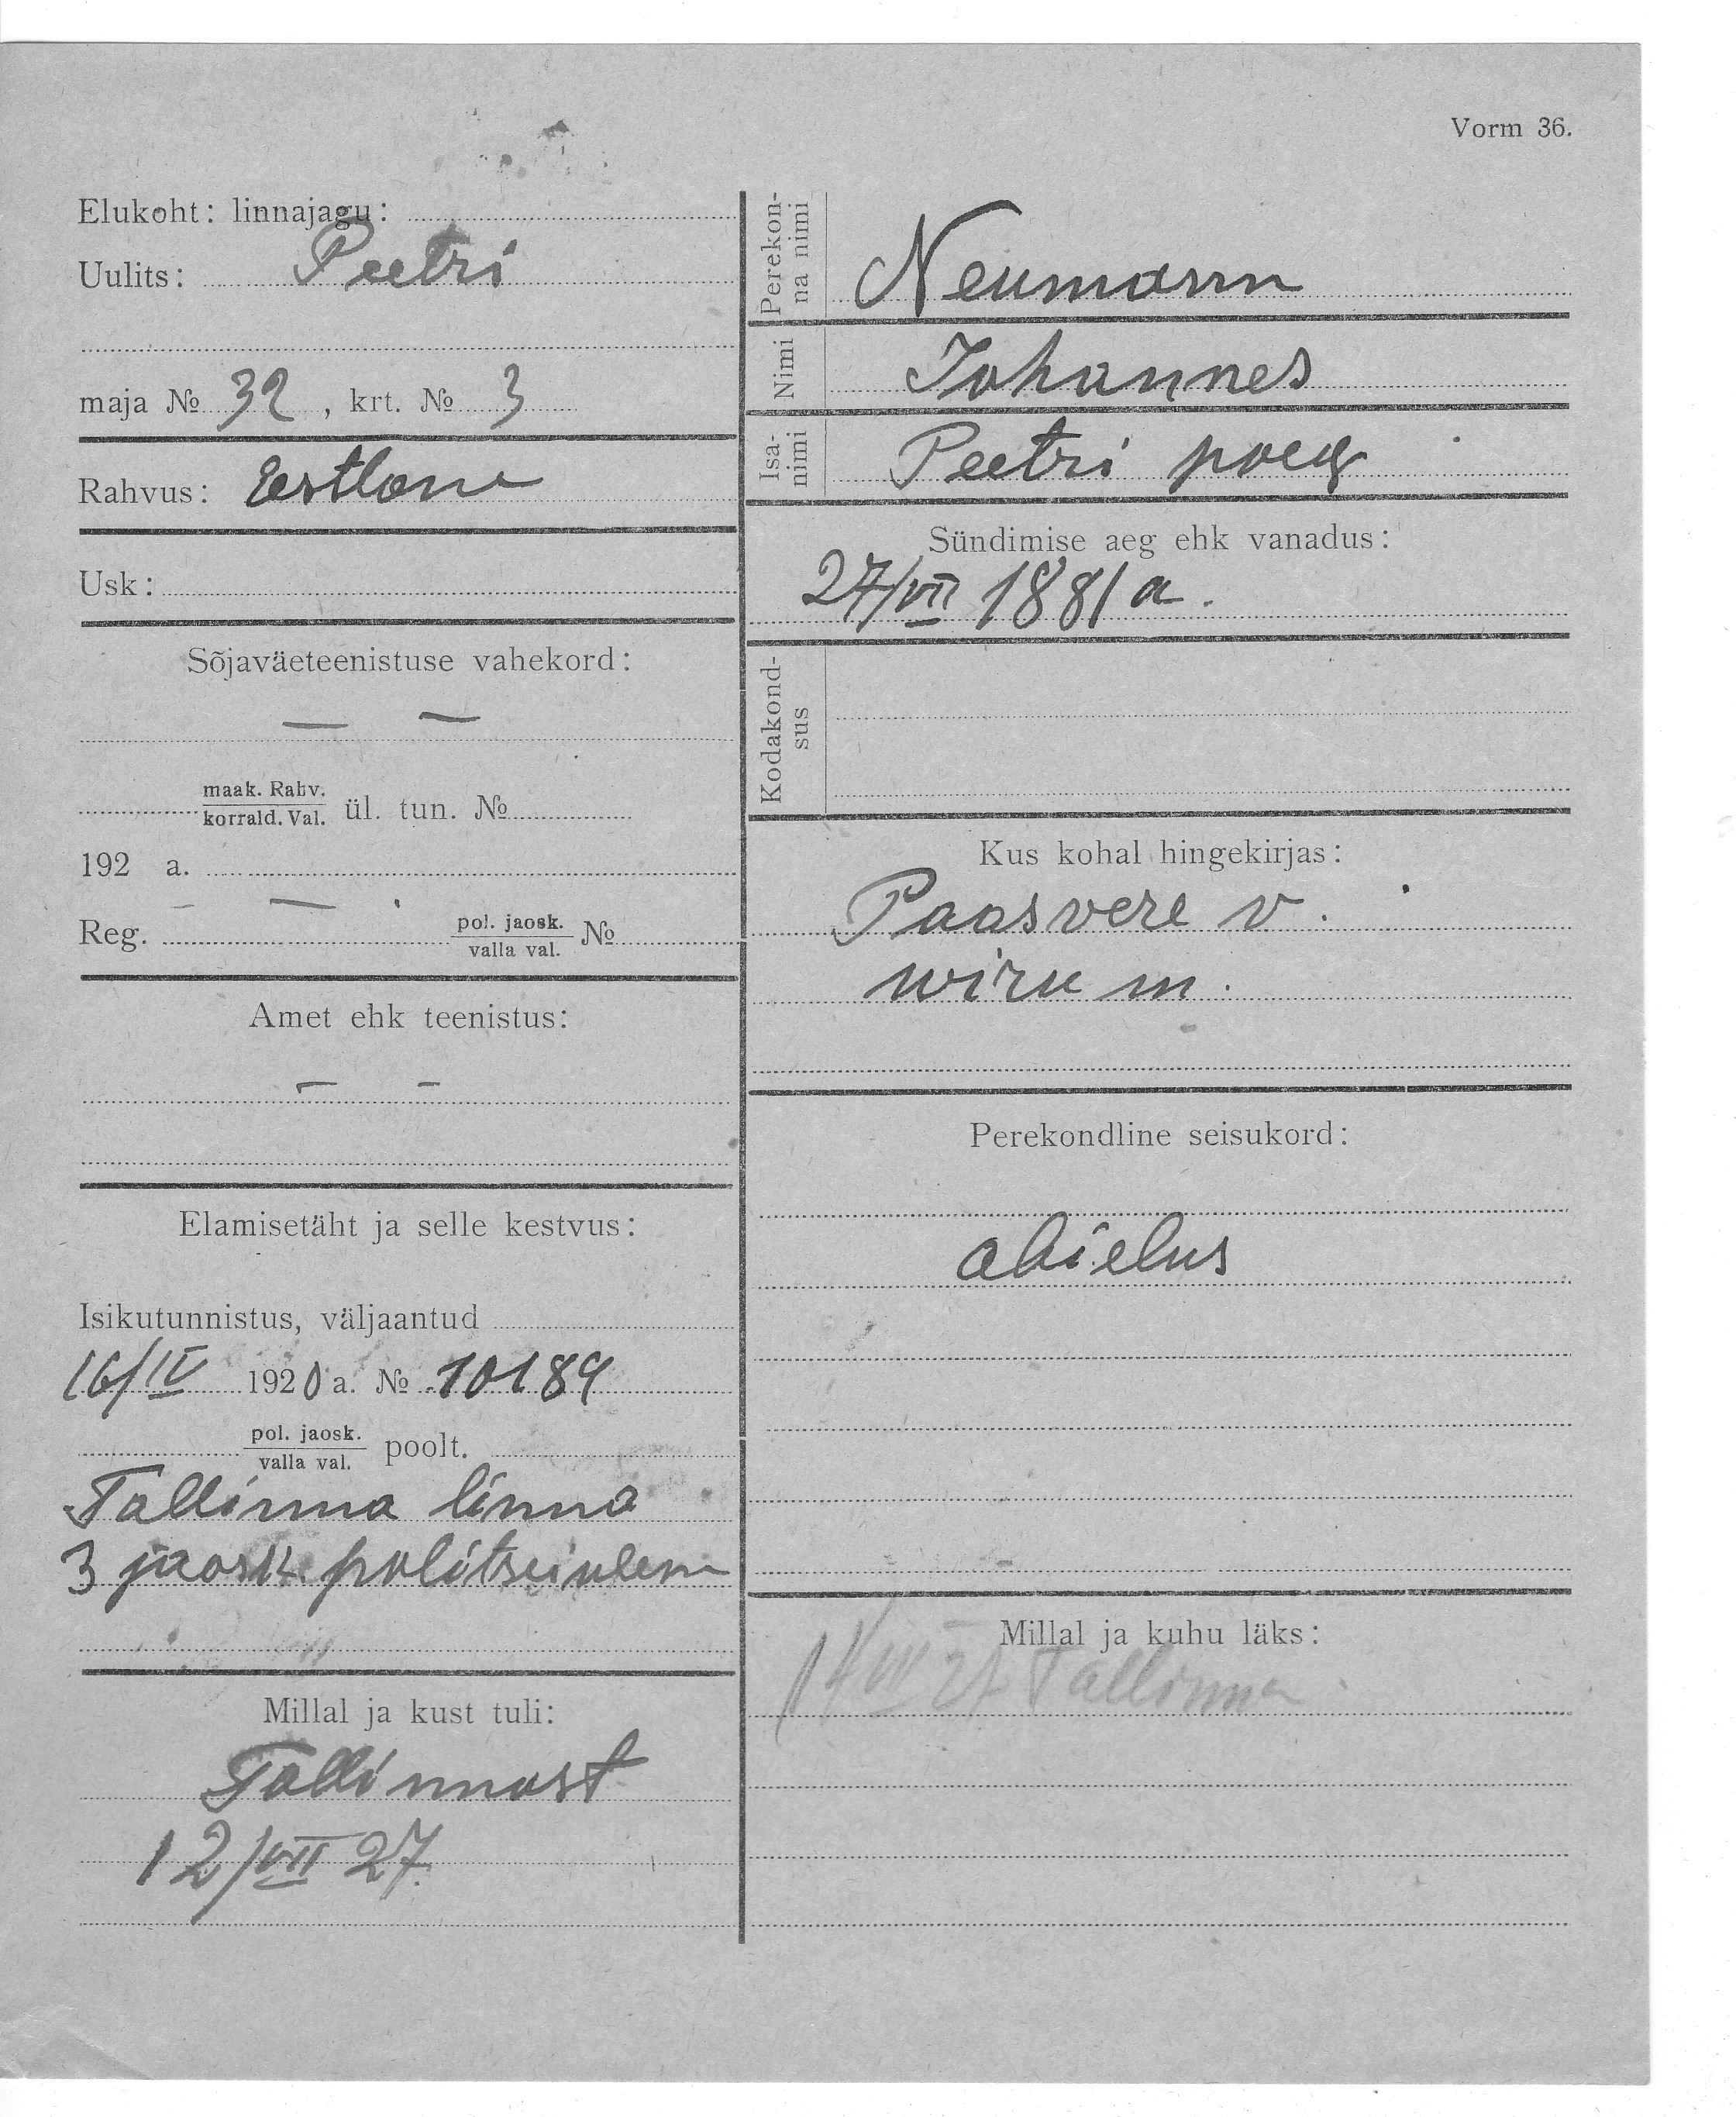 Vorm 36.
Elukoht: linnajagu:
Uulits: Peetri
maja № 32, krt. № 3
Rahvus: Estlane
Usk:
Sõjaväeteenistuse vahekord:
— —
maak. Rahv.
korrald. Val. ül. tun. №
192 a.
— — .
Reg. pol. jaosk. №
valla val.
Amet ehk teenistus:
— -
Elamisetäht ja selle kestvus:
Isikutunnistus, väljaantud
16/IV 1920 a. № 10189
pol. jaosk.
valla val. poolt.
Tallinna linna
3 jaosk. politseiülem
Millal ja kust tuli:
Tallinnast
12/VII 27.
Perekon-
na nimi Neumann
Nimi Johannes
Isa-
nimi Peetri poeg
Sündimise aeg ehk vanadus:
27/VII 1881 a.
Kodakond-
sus
Kus kohal hingekirjas:
Paasvere v.
Wiru m.
Perekondline seisukord:
abielus
Millal ja kuhu läks:
14 VII 27 Tallinna